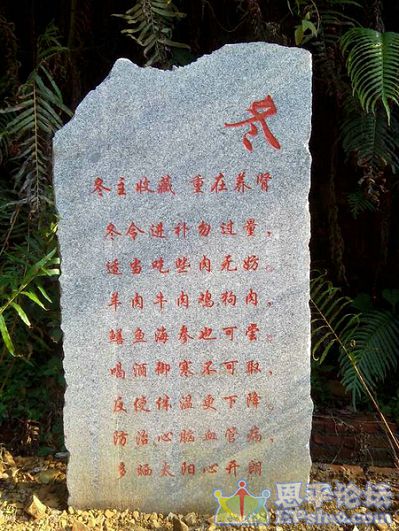 冬
冬主收藏 重在养肾
冬令进补勿过量，
适当吃些肉无妨。
羊肉牛肉鸡狗肉，
鳝鱼海参也可尝。
喝酒御寒不可取，
反使体温更下降。
防治心脑血管病，
多晒太阳心开朗
恩平论坛